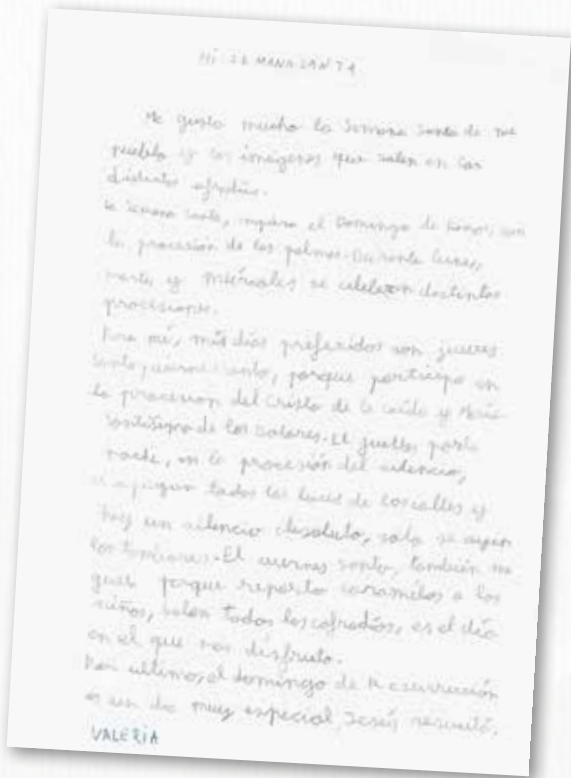 Mi SEMANA SANTA
Me gusta mucho la Semana Santa de mi
pueblo y las imágenes que salen en las
distintas cofradías.
la Semana Santa, empieza el Domingo de Ramos, con
la procesión de las palmas. Durante lunes,
martes y miércoles se celebran distintas
procesiones.
Para mí, mis días preferidos son jueves
santo y viernes santo, porque participo en
la procesion del Cristo de la caída y María
santísima de los Dolores. El jueves por la
noche, en la procesión del silencio,
se apagan todas las luces de las calles y
hay un silencio absoluto, solo se oyen
los tambores. El viernes santo, también me
gusta porque reparto caramelos a los
niños, salen todas las cofradías, es el día
en el que más disfruto.
Por ultimo, el domingo de Resurrección
es un día muy especial, Jesús resucitó.
VALERIA